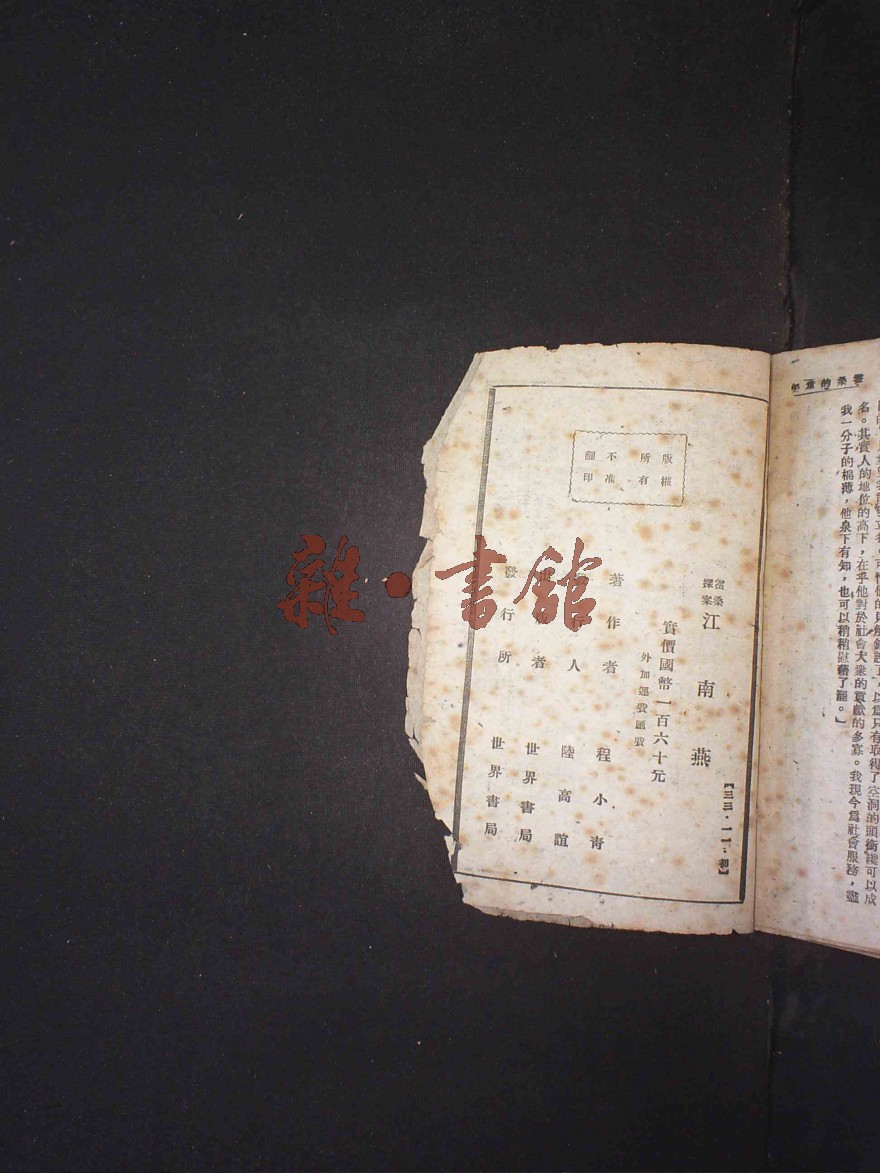 霍桑的童年
名。其實人的地位的高下，在乎他對於社會大衆的貢獻的多寡。我現今爲社會服務，盡
我一分子的棉薄，他泉下有知，也可以稍稍慰藉了罷。」
版權
所有
不准
翻印
霍桑
探案
江南燕
【三三·一一·初】
實價國幣一百六十元
外加運費匯費
著作者 程小青
發行人 陸高誼
出版者 世界書局
發行所 世界書局
雜·書館